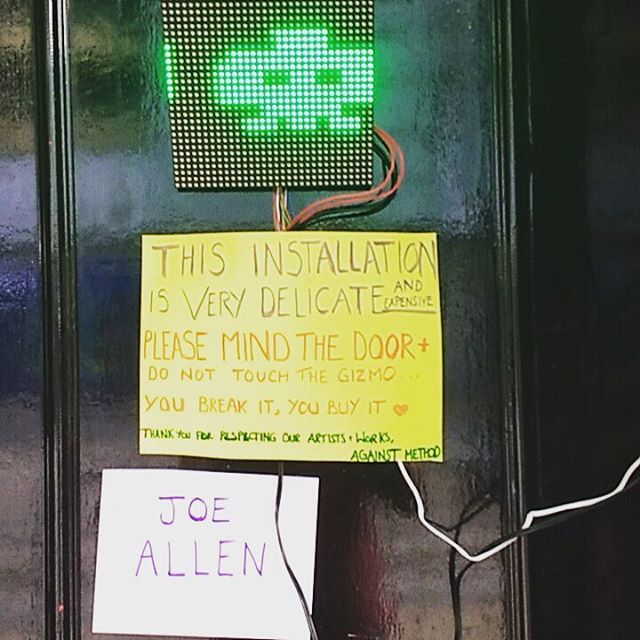 THIS INSTALLATION
IS VERY DELICATE AND EXPENSIVE
PLEASE MIND THE DOOR +
DO NOT TOUCH THE GIZMO...
YOU BREAK IT, YOU BUY IT ♥
THANK YOU FOR RESPECTING OUR ARTISTS + WORKS,
AGAINST METHOD
JOE
ALLEN